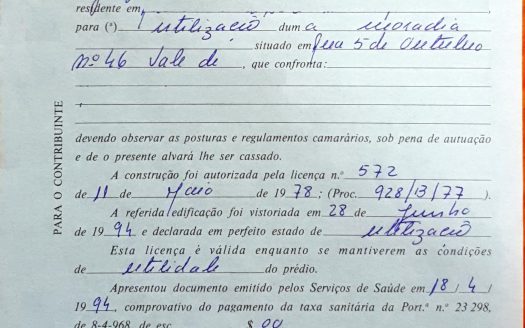 residente em
para (ª) utilização duma moradia
situado em Rua 5 de Outubro
Nº 46 Vale de, que confronta:
devendo observar as posturas e regulamentos camarários, sob pena de autuação
e de o presente alvará lhe ser cassado.
A construção foi autorizada pela licença n.º 572
de 11 de Maio de 1978; (Proc. 928/13/77).
A referida edificação foi vistoriada em 28 de Junho
de 1994 e declarada em perfeito estado de utilização
Esta licença é válida enquanto se mantiverem as condições
de utilidade do prédio.
Apresentou documento emitido pelos Serviços de Saúde em 18/4/
1994, comprovativo do pagamento da taxa sanitária da Port.ª n.º 23 298,
de 8-4-968, de esc. $00
PARA O CONTRIBUINTE